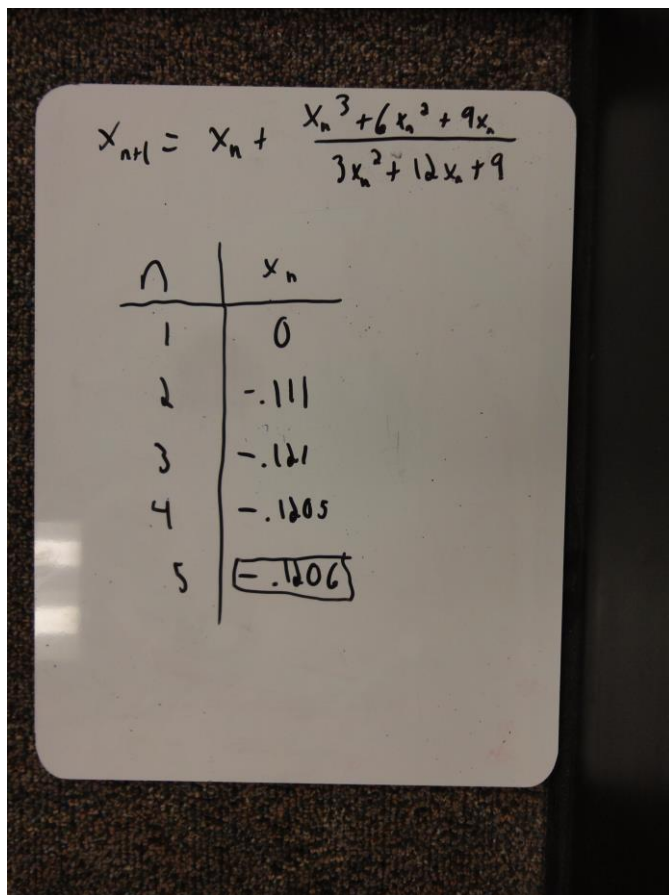 x_{n+1} = x_n + \frac{x_n^3 + 6x_n^2 + 9x_n}{3x_n^2 + 12x_n + 9}
n | x_n
1 | 0
2 | -.111
3 | -.121
4 | -.1205
5 | -.1206